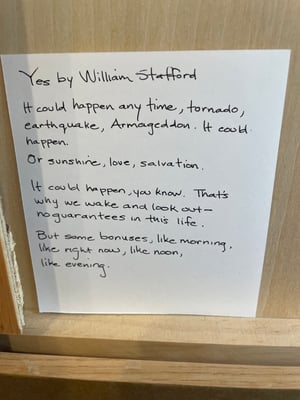 Yes by William Stafford
It could happen any time, tornado,
earthquake, Armageddon. It could
happen.
Or sunshine, love, salvation.
It could happen, you know. That's
why we wake and look out—
no guarantees in this life.
But some bonuses, like morning,
like right now, like noon,
like evening.